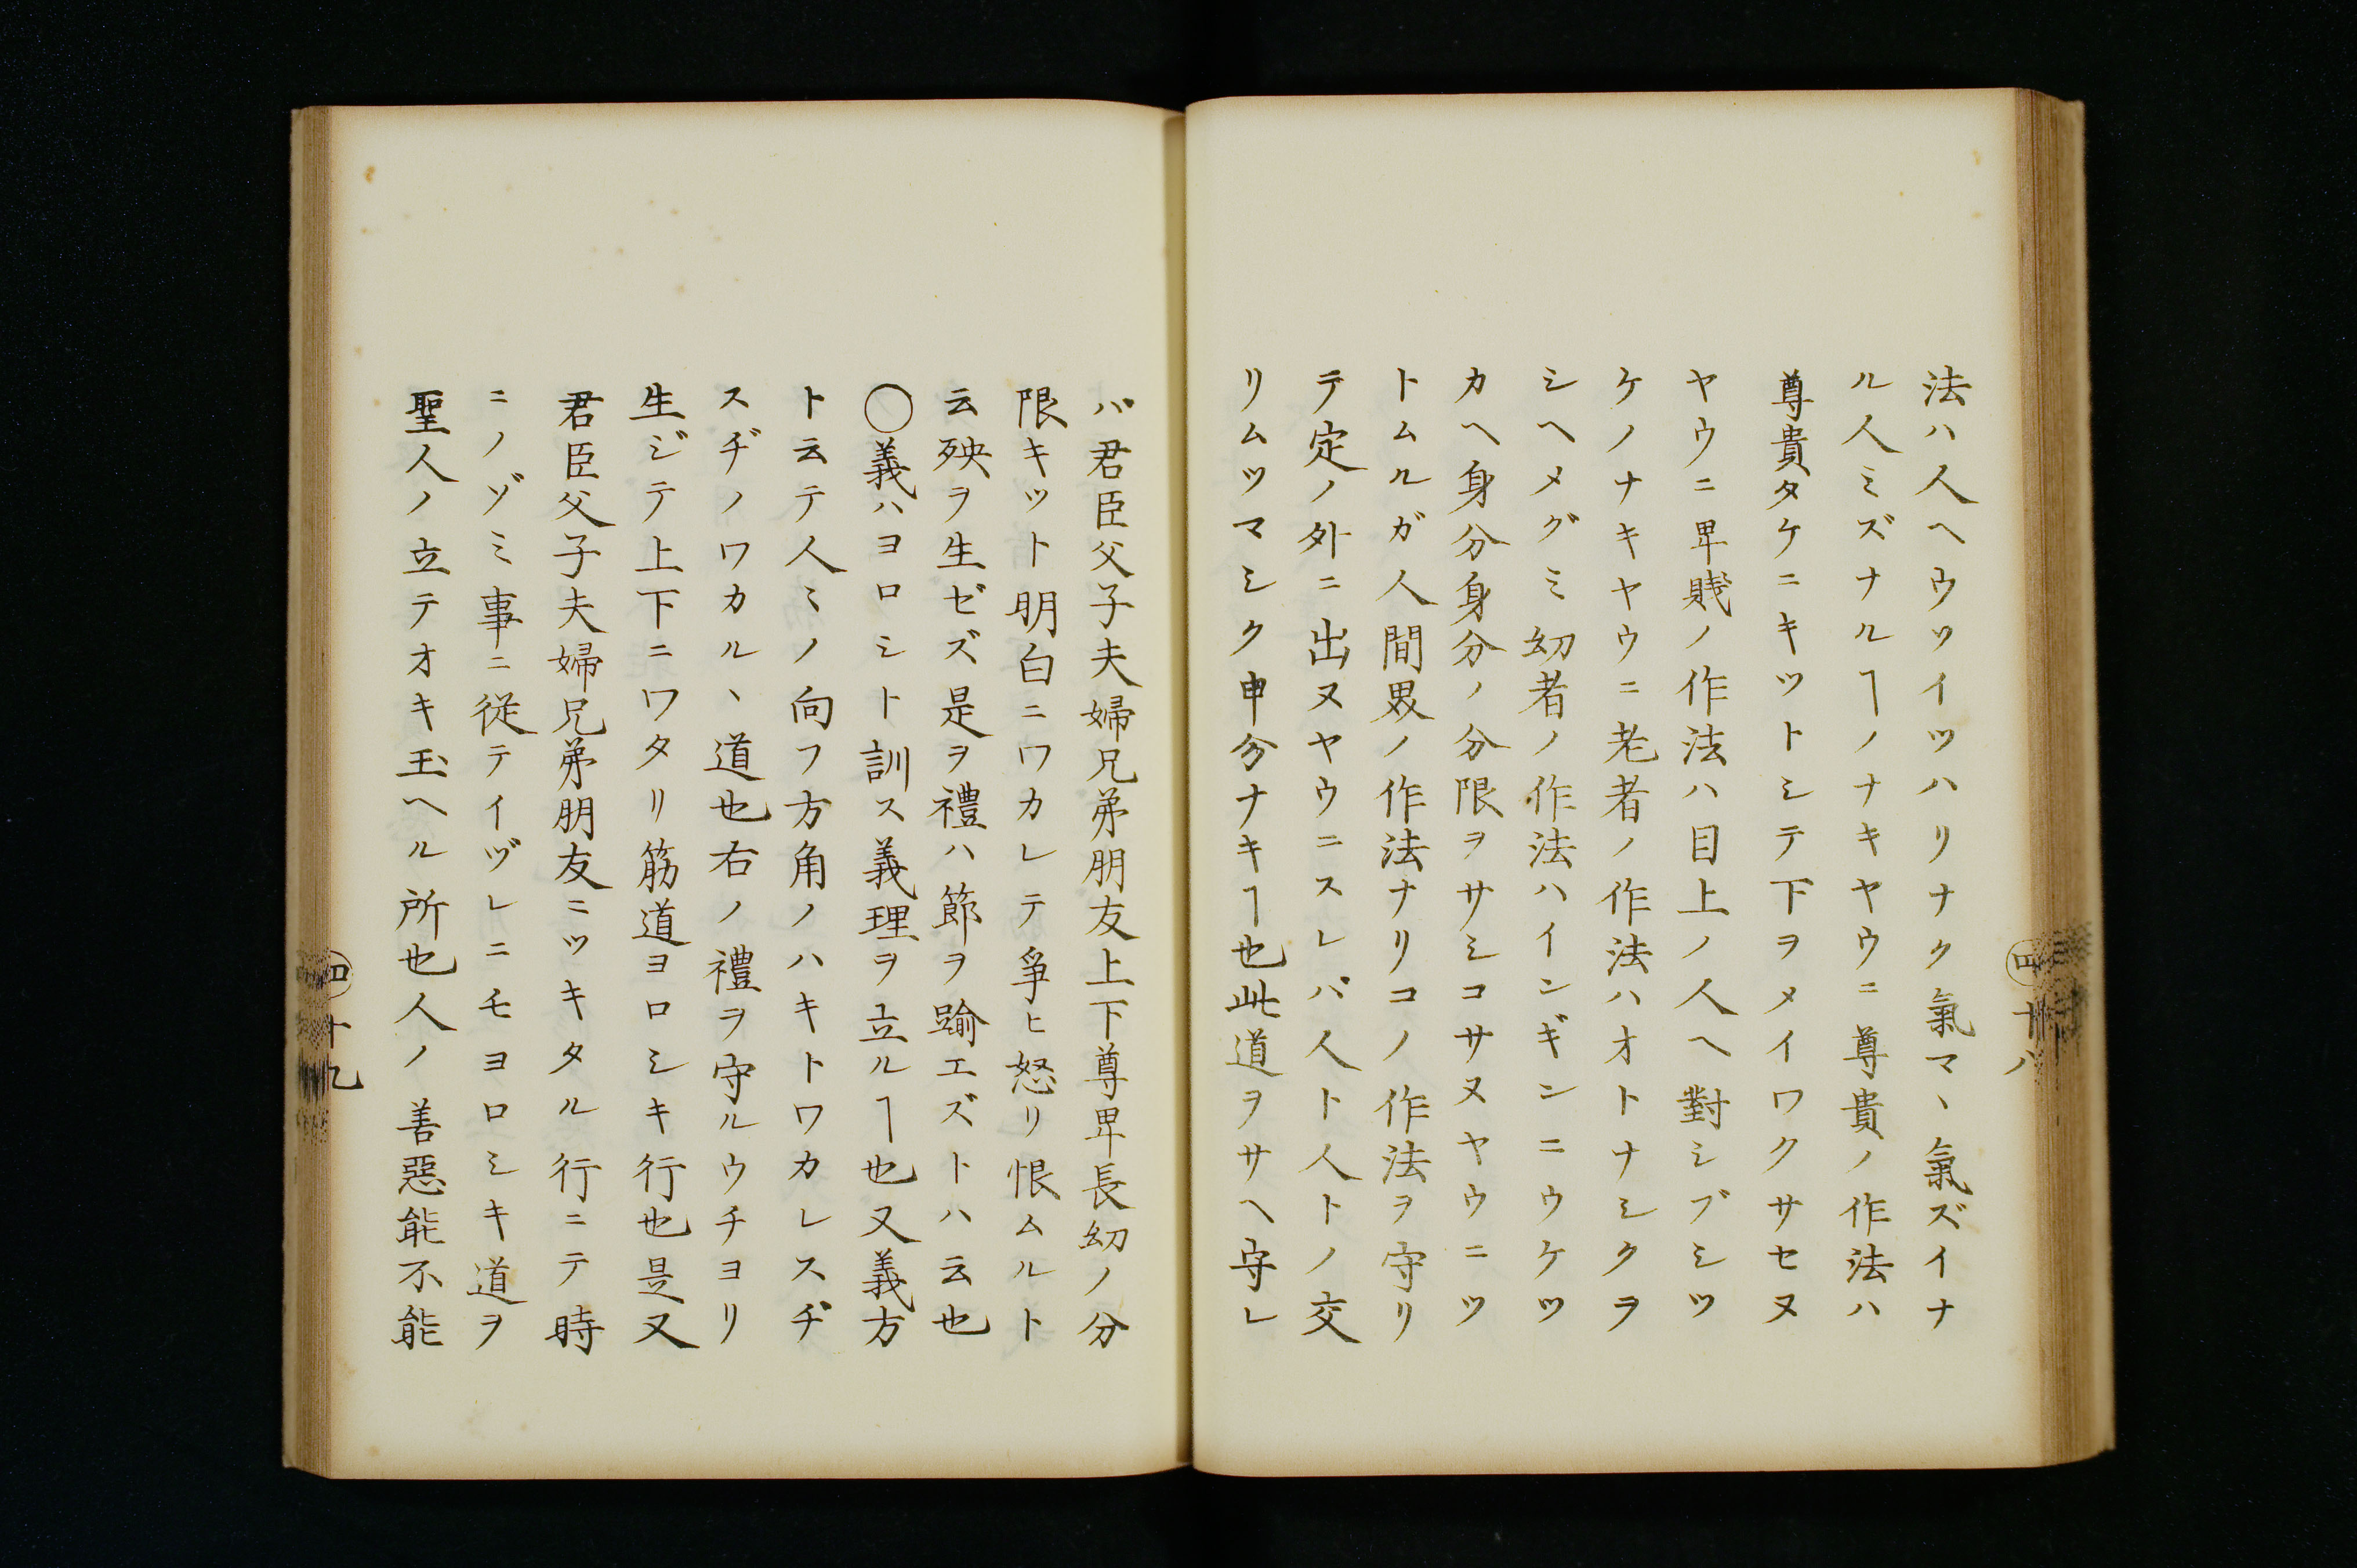 法ハ人ヘウツイツハリナク氣マヽ氣ズイナ
ル人ミズナルヿノナキヤウニ尊貴ノ作法ハ
尊貴タケニキツトシテ下ヲメイワクサセヌ
ヤウニ卑賤ノ作法ハ目上ノ人ヘ對シブシツ
ケノナキヤウニ老者ノ作法ハオトナシクヲ
シヘメグミ幼者ノ作法ハインギンニウケツ
カヘ身分身分ノ分限ヲサシコサヌヤウニツ
トムルガ人間界ノ作法ナリコノ作法ヲ守リ
テ定ノ外ニ出ヌヤウニスレバ人ト人トノ交
リムツマシク申分ナキヿ也此道ヲサヘ守レ
四十八
バ君臣父子夫婦兄弟朋友上下尊卑長幼ノ分
限キツト明白ニワカレテ爭ヒ怒リ恨ムルト
云殃ヲ生ゼズ是ヲ禮ハ節ヲ踰エズトハ云也
〇義ハヨロシト訓ス義理ヲ立ルヿ也又義方
ト云テ人ミノ向フ方角ノハキトワカレスヂ
スヂノワカルヽ道也右ノ禮ヲ守ルウチヨリ
生ジテ上下ニワタリ筋道ヨロシキ行也是又
君臣父子夫婦兄弟朋友ニツキタル行ニテ時
ニノゾミ事ニ從テイヅレニモヨロシキ道ヲ
聖人ノ立テオキ玉ヘル所也人ノ善惡能不能
四十九